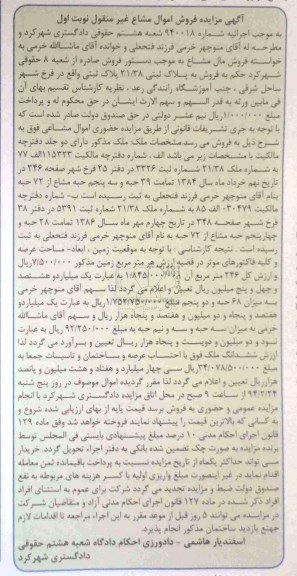 آگهی مزایده فروش اموال مشاع غیر منقول نوبت اول
به موجب اجرائیه شماره ۹۴۰۰۱۸ شعبه هشتم حقوقی دادگستری شهرکرد و
مطرحه له آقای منوچهر خرمی فرزند فتحعلی و خوانده آقای ماشاالله خرمی به
خواسته فروش مال مشاع به موجب دستور فروش صادره از شعبه ۸ حقوقی
شهرکرد حکم به فروش به پلاک ثبتی ۲۱/۳۸ پلاک ثبتی واقع در فرخ شهر
ساحل شرقی ، جنب آموزشگاه رانندگی رعد ، نظریه کارشناس تقسیم بهای آن
فی مابین ورثه به قدر السهم و سهم الارث ایشان در حق محکوم له و پرداخت
مبلغ ۱/۰۰۰/۰۰۰ریال نیم عشر دولتی در حق صندوق دولت صادر شده است که
با توجه به جری تشریفات قانونی از طریق مزایده حضوری اموال مشاعی فوق به
شرح ذیل به فروش می رسد.مشخصات ملک: ملک مذکور دارای دو جلد دفترچه
مالکیت با مشخصات زیر می باشد الف. شماره دفترچه مالکیت ۱۱۵۳۲۳الف ۷۷
به شماره ملک ۲۱/۳۸ شماره ثبت ۳۳۲۶ در دفتر ۲۵ فرخ شهر صفحه ۳۴۶ در
تاریخ نهم خرداد ماه سال ۱۳۸۴ تمامت ۳۹ حبه و سه پنجم حبه مشاع از ۷۲ حبه
بنام آقای منوچهر خرمی فرزند فتحعلی به ثبت رسیده است ب- شماره دفترچه
مالکیت ۰۲۰۴۷۹ الف ۸۵ به شماره ملک ۲۱/۳۸ شماره ثبت ۵۳۹۱ در دفتر ۳۸
فرخ شهر صفحه ۳۴۸ در تاریخ چهارم مهر ماه سال ۱۳۸۶ تمامت ۲۸ حبه و
چهارپنجم حبه مشاع از ۷۲ حبه به نام آقای منوچهر خرمی فرزند فتحعلی به ثبت
رسیده است . نتیجه کارشناسی : با توجه به موقعیت زمین ، ابعاد- مساحت عرصه
و کلیه فاکتورهای موثر در قضیه ارزش هر متر مربع زمین مذکور ۷/۵۰۰/۰۰۰ریال
و ارزش کل ۲۴۶ متر مربع آن ۱/۸۴۵/۰۰۰/۰۰۰ به عبارت یک میلیارد و هشتصد
و چهل و پنج میلیون ریال تعیین و اعلام می گردد لذا سهم آقای منوچهر خرمی
به میزان ۶۸ حبه و دو پنجم مبلغ ۱/۷۵۲/۷۵۰/۰۰۰ریال به عبارت یک میلیارد و
هفتصد و پنجاه و دو میلیون و هفتصد و پنجاه هزار ریال و سهم آقای ماشاالله
خرمی به میزان سه حبه و سه و نیم حبه به مبلغ ۹۲/۲۵۰/۰۰۰ ریال به عبارت
نود و دو میلیون و دویست و پنجاه هزار ریال تعیین و برآورد می گردد لذا
ارزش ششدانگ ملک فوق با احتساب عرصه و ساختمان و تاسیسات جمعا به
مبلغ ۳۴/۰۷۸/۵۰۰/۰۰۰ریال سی چهار میلیارد و هفتاد و هشت میلیون و پانصد
هزارریال تعیین و اعلامی می گردد لذا مقرر گردیده اموال موصوف در روز پنج شنبه
۹۴/۲/۲۴ از ساعت ۹ صبح در محل اتاق مزایده دادگستری شهرکرد با انجام
مزایده عمومی و حضوری به فروش برسد قیمت پایه از بهای ارزیابی شده شروع و
به کسانی که بالاترین قیمت را پیشنهاد نمایند فروخته خواهد شد وفق ماده ۱۲۹
قانون اجرای احکام مدنی ۱۰ درصد مبلغ پیشنهادی بایستی فی المجلس توسط
برنده مزایده به صورت چک تضمین شده بانکی به دفتر اجراء تحویل گردد. خریدار
می تواند حداکثر یکماه از تاریخ مزایده نسبت به پرداخت باقیمانده ثمن معامله
اقدام نماید در غیر اینصورت مبلغ واریزی اولیه با کسر هزینه های مربوطه به نفع
صندوق دولت ضبط و مزایده تجدید می گردد شرکت برای عموم به استثنای افراد
افراد ذکر شده در ماده ۱۲۷ قانون اجرای احکام مدنی آزاد و متقاضیان شرکت
در مزایده می توانند ۵ روز قبل از موعد مقرر به این اجراء مراجعه تا اقدامات لازم
جهت بازدید ساختمان مذکور انجام پذیرد.
اسفندیار هاشمی - دادورزی احکام دادگاه شعبه هشتم حقوقی
دادگستری شهرکرد